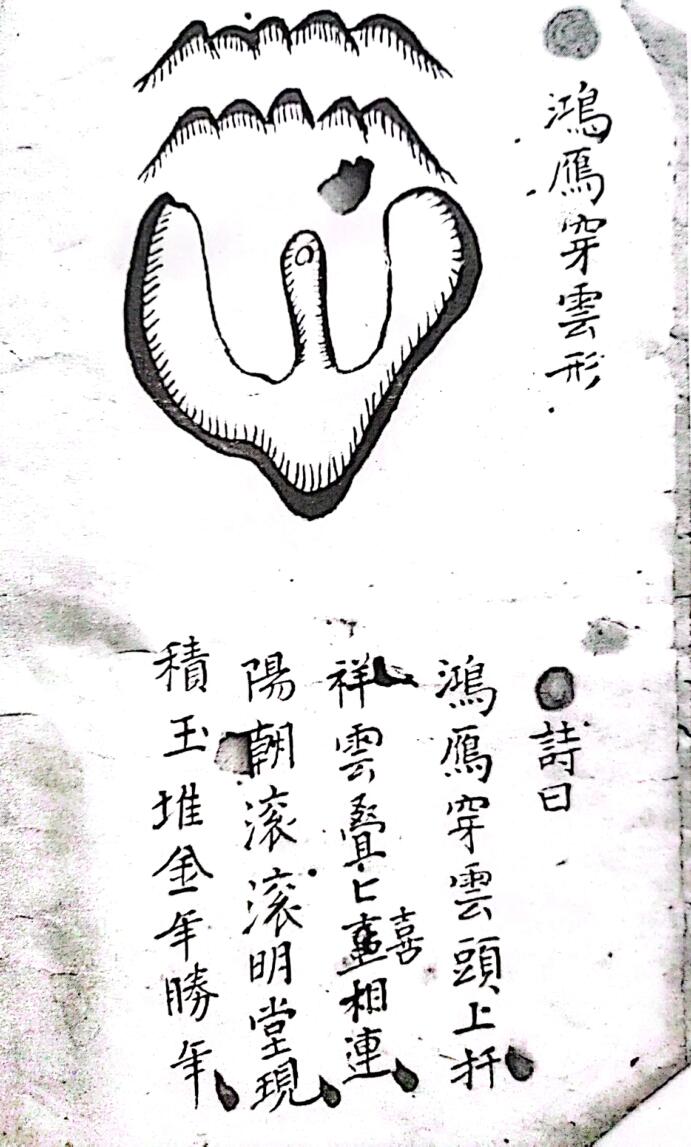 鴻鴈穿雲形
詩曰
鴻鴈穿雲頭上扦
祥雲疊〻喜相連
陽朝滚滚明堂現
積玉堆金年勝年